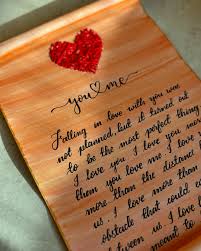 you me
Falling in love with you was
not planned, but it turned out
to be the most perfect thing
I love you I love you more
them you love me I love
more them the distance
us. I love more them
obstacle that could e
tween us. I love
meant to